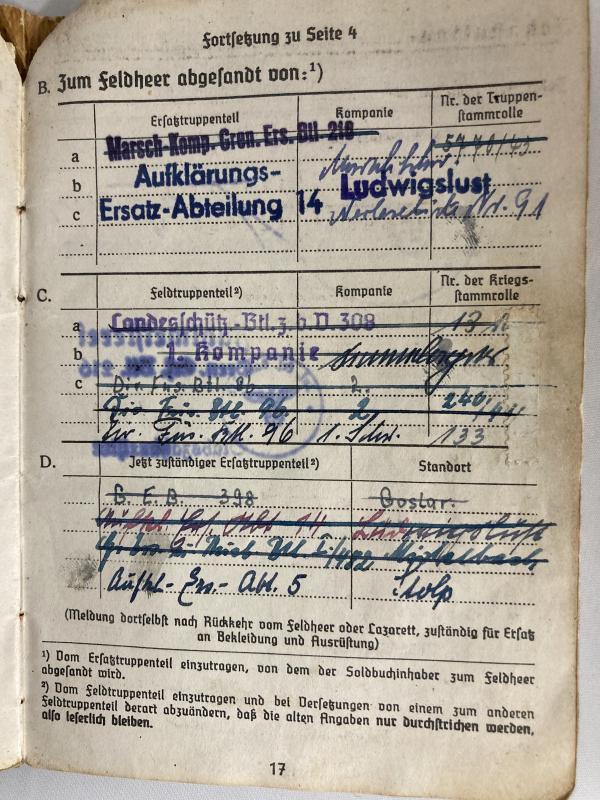 Fortsetzung zu Seite 4
B. Zum Feldheer abgesandt von:¹)
Ersatztruppenteil Kompanie Nr. der Truppen-
stammrolle
a Marsch-Komp. Gren. Ers. Btl. 216 5770/43
b Aufklärungs- Ludwigslust
c Ersatz-Abteilung 14 Nr. 91
C. Feldtruppenteil²) Kompanie Nr. der Kriegs-
stammrolle
a Landesschütz.-Btl. z.b.V. 308 13
b 1. Kompanie
c Div. Füs. Btl. 96. 2. 240/44
Div. Füs. Btl. 96. 2.
Div. Füs. Btl. 96 1. Schw. 133
D. Jetzt zuständiger Ersatztruppenteil²) Standort
G. E. B. 398 Goslar.
Ers. Abt. 14 Ludwigslust
Aufkl.- Ers.- Abt. 5 Stolp
(Meldung dortselbst nach Rückkehr vom Feldheer oder Lazarett, zuständig für Ersatz
an Bekleidung und Ausrüstung)
¹) Vom Ersatztruppenteil einzutragen, von dem der Soldbuchinhaber zum Feldheer
abgesandt wird.
²) Vom Feldtruppenteil einzutragen und bei Versetzungen von einem zum anderen
Feldtruppenteil derart abzuändern, daß die alten Angaben nur durchstrichen werden,
also leserlich bleiben.
17